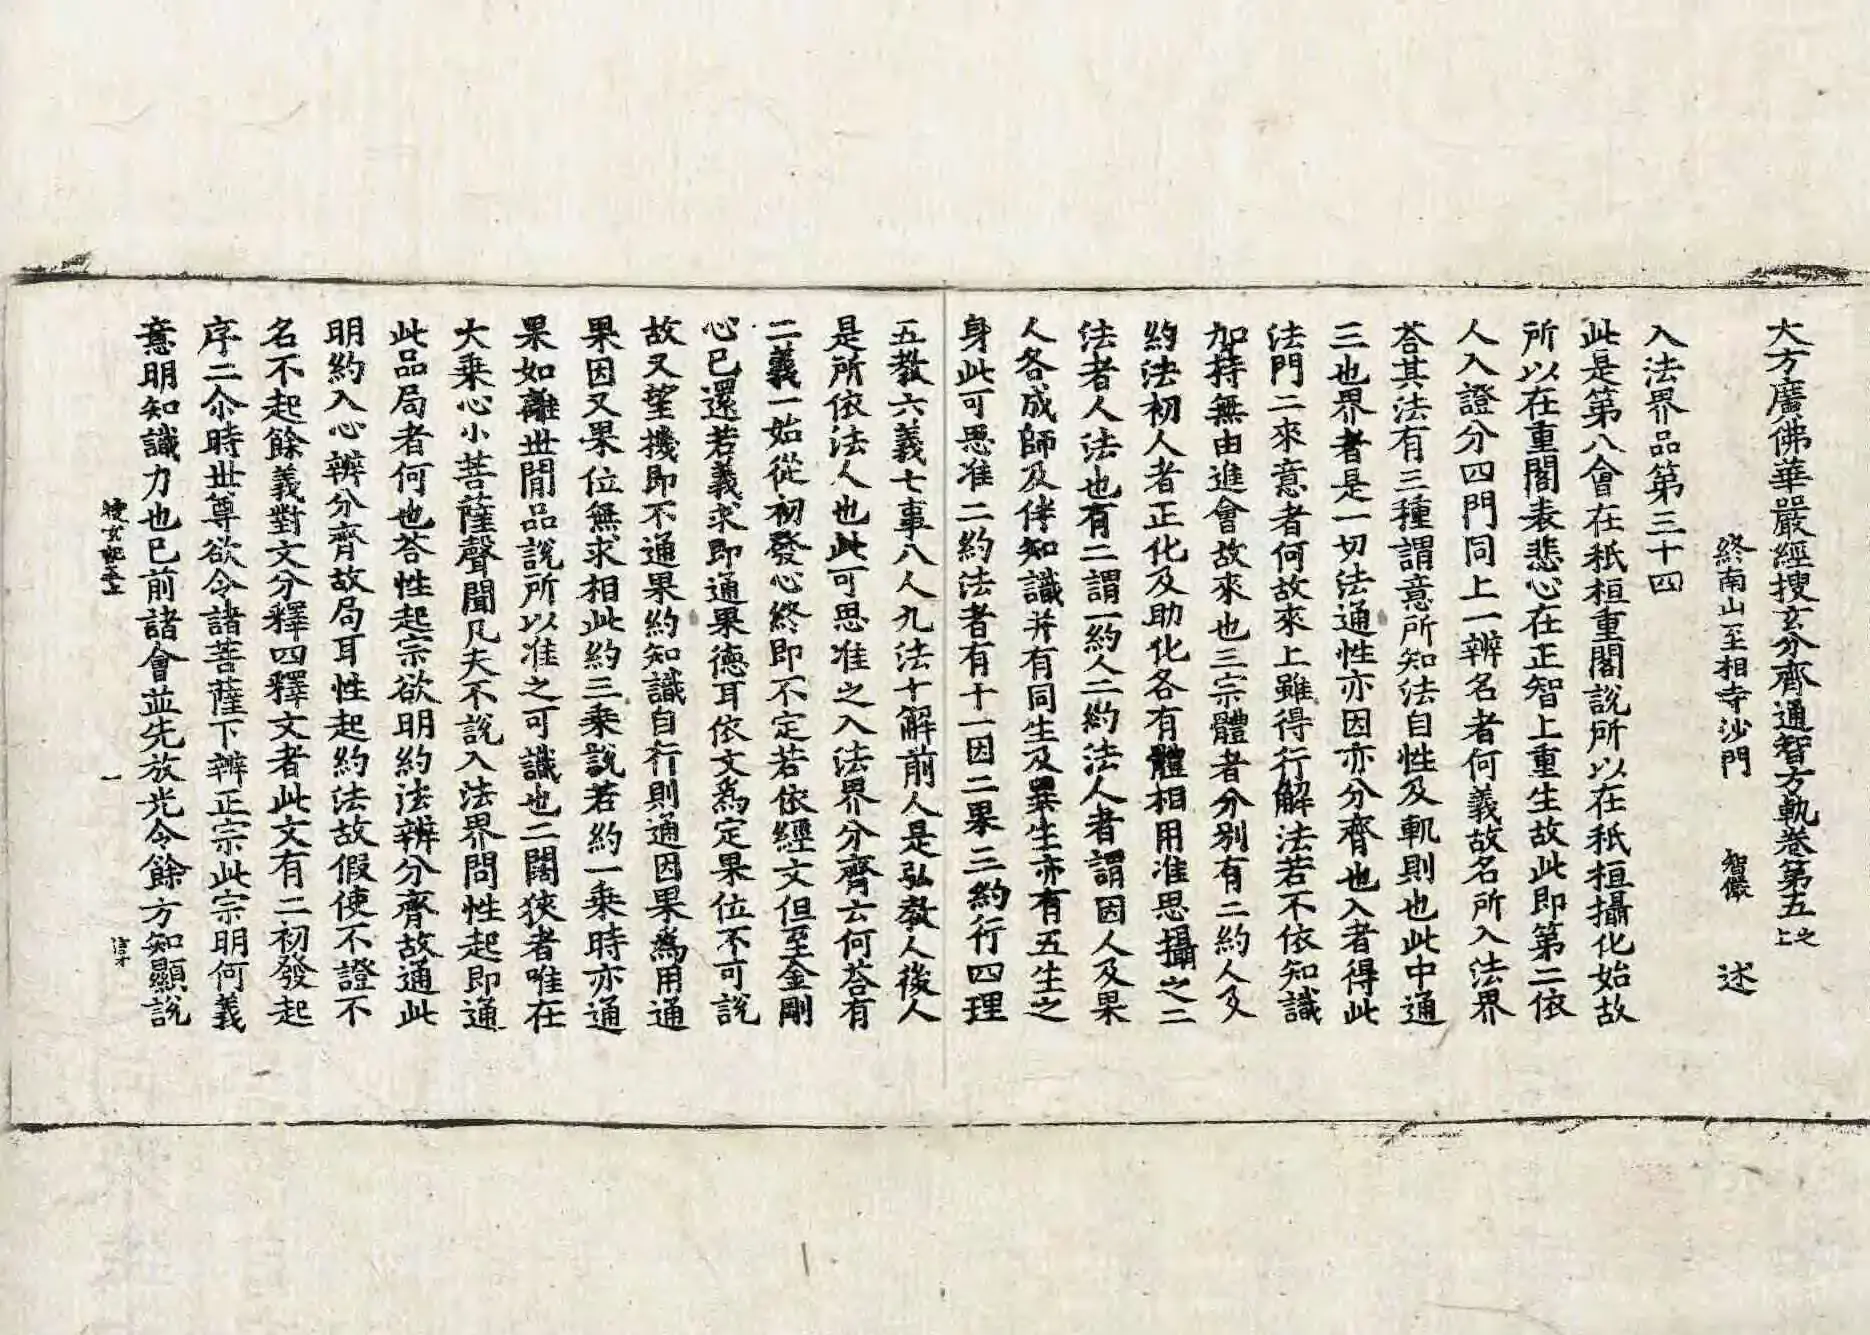 大方廣佛華嚴經搜玄分齊通智方軌卷第五之上
終南山至相寺沙門 智儼 述
入法界品第三十四
此是第八會在秖桓重閣說所以在秖桓攝化始故
所以在重閣表悲心在正智上重生故此即第二依
人入證分四門同上一辨名者何義故名所入法界
荅其法有三種謂意所知法自性及軌則也此中通
三也界者是一切法通性亦因亦分齊也入者得此
法門二來意者何故來上雖得行解法若不依知識
加持無由進會故來也三宗體者分別有二約人及
約法初人者正化及助化各有體相用准思攝之二
法者人法也有二謂一約人二約法人者謂因人及果
人各成師及伴知識并有同生及異生亦有五生之
身此可思准二約法者有十一因二果三約行四理
五教六義七事八人九法十解前人是弘教人後人
是所依法人也此可思准之入法界分齊云何荅有
二義一始從初發心終即不定若依經文但至金剛
心已還若義求即通果德耳依文為定果位不可說
故又望機即不通果約知識自行則通因果為用通
果因又果位無求相此約三乘說若約一乘時亦通
果如離世間品說所以准之可識也二闊狹者唯在
大乘心小菩薩聲聞凡夫不說入法界問性起即通
此品局者何也荅性起宗欲明約法辨分齊故通此
明約入心辨分齊故局耳性起約法故假使不證不
名不起餘義對文分釋四釋文者此文有二初發起
序二尒時世尊欲令諸菩薩下辨正宗此宗明何義
意明知識力也已前諸會並先放光令餘方知顯說
搜玄記五上
一